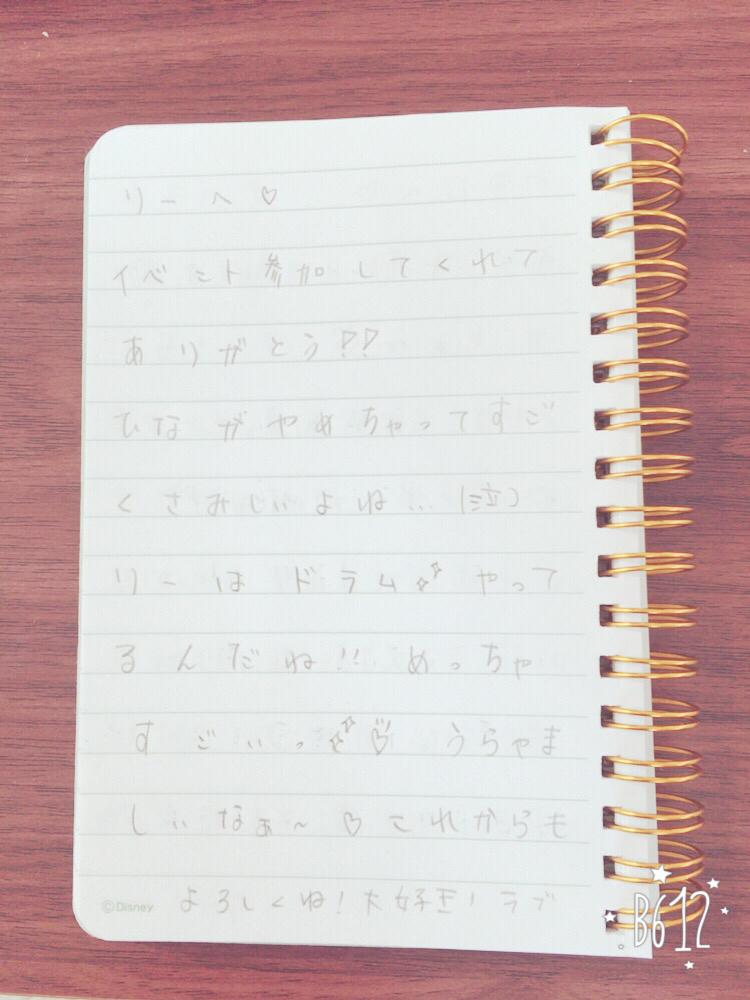 リーへ♡
イベント参加してくれて
ありがとう!?
ひながやめちゃってすご
くさみしいよね… (泣)
リーはドラム やって
るんだね!! めっちゃ
すごいっ うらやま
しいなぁ〜♡これからも
©Disney よろしくね!大好き!ラブ
B612